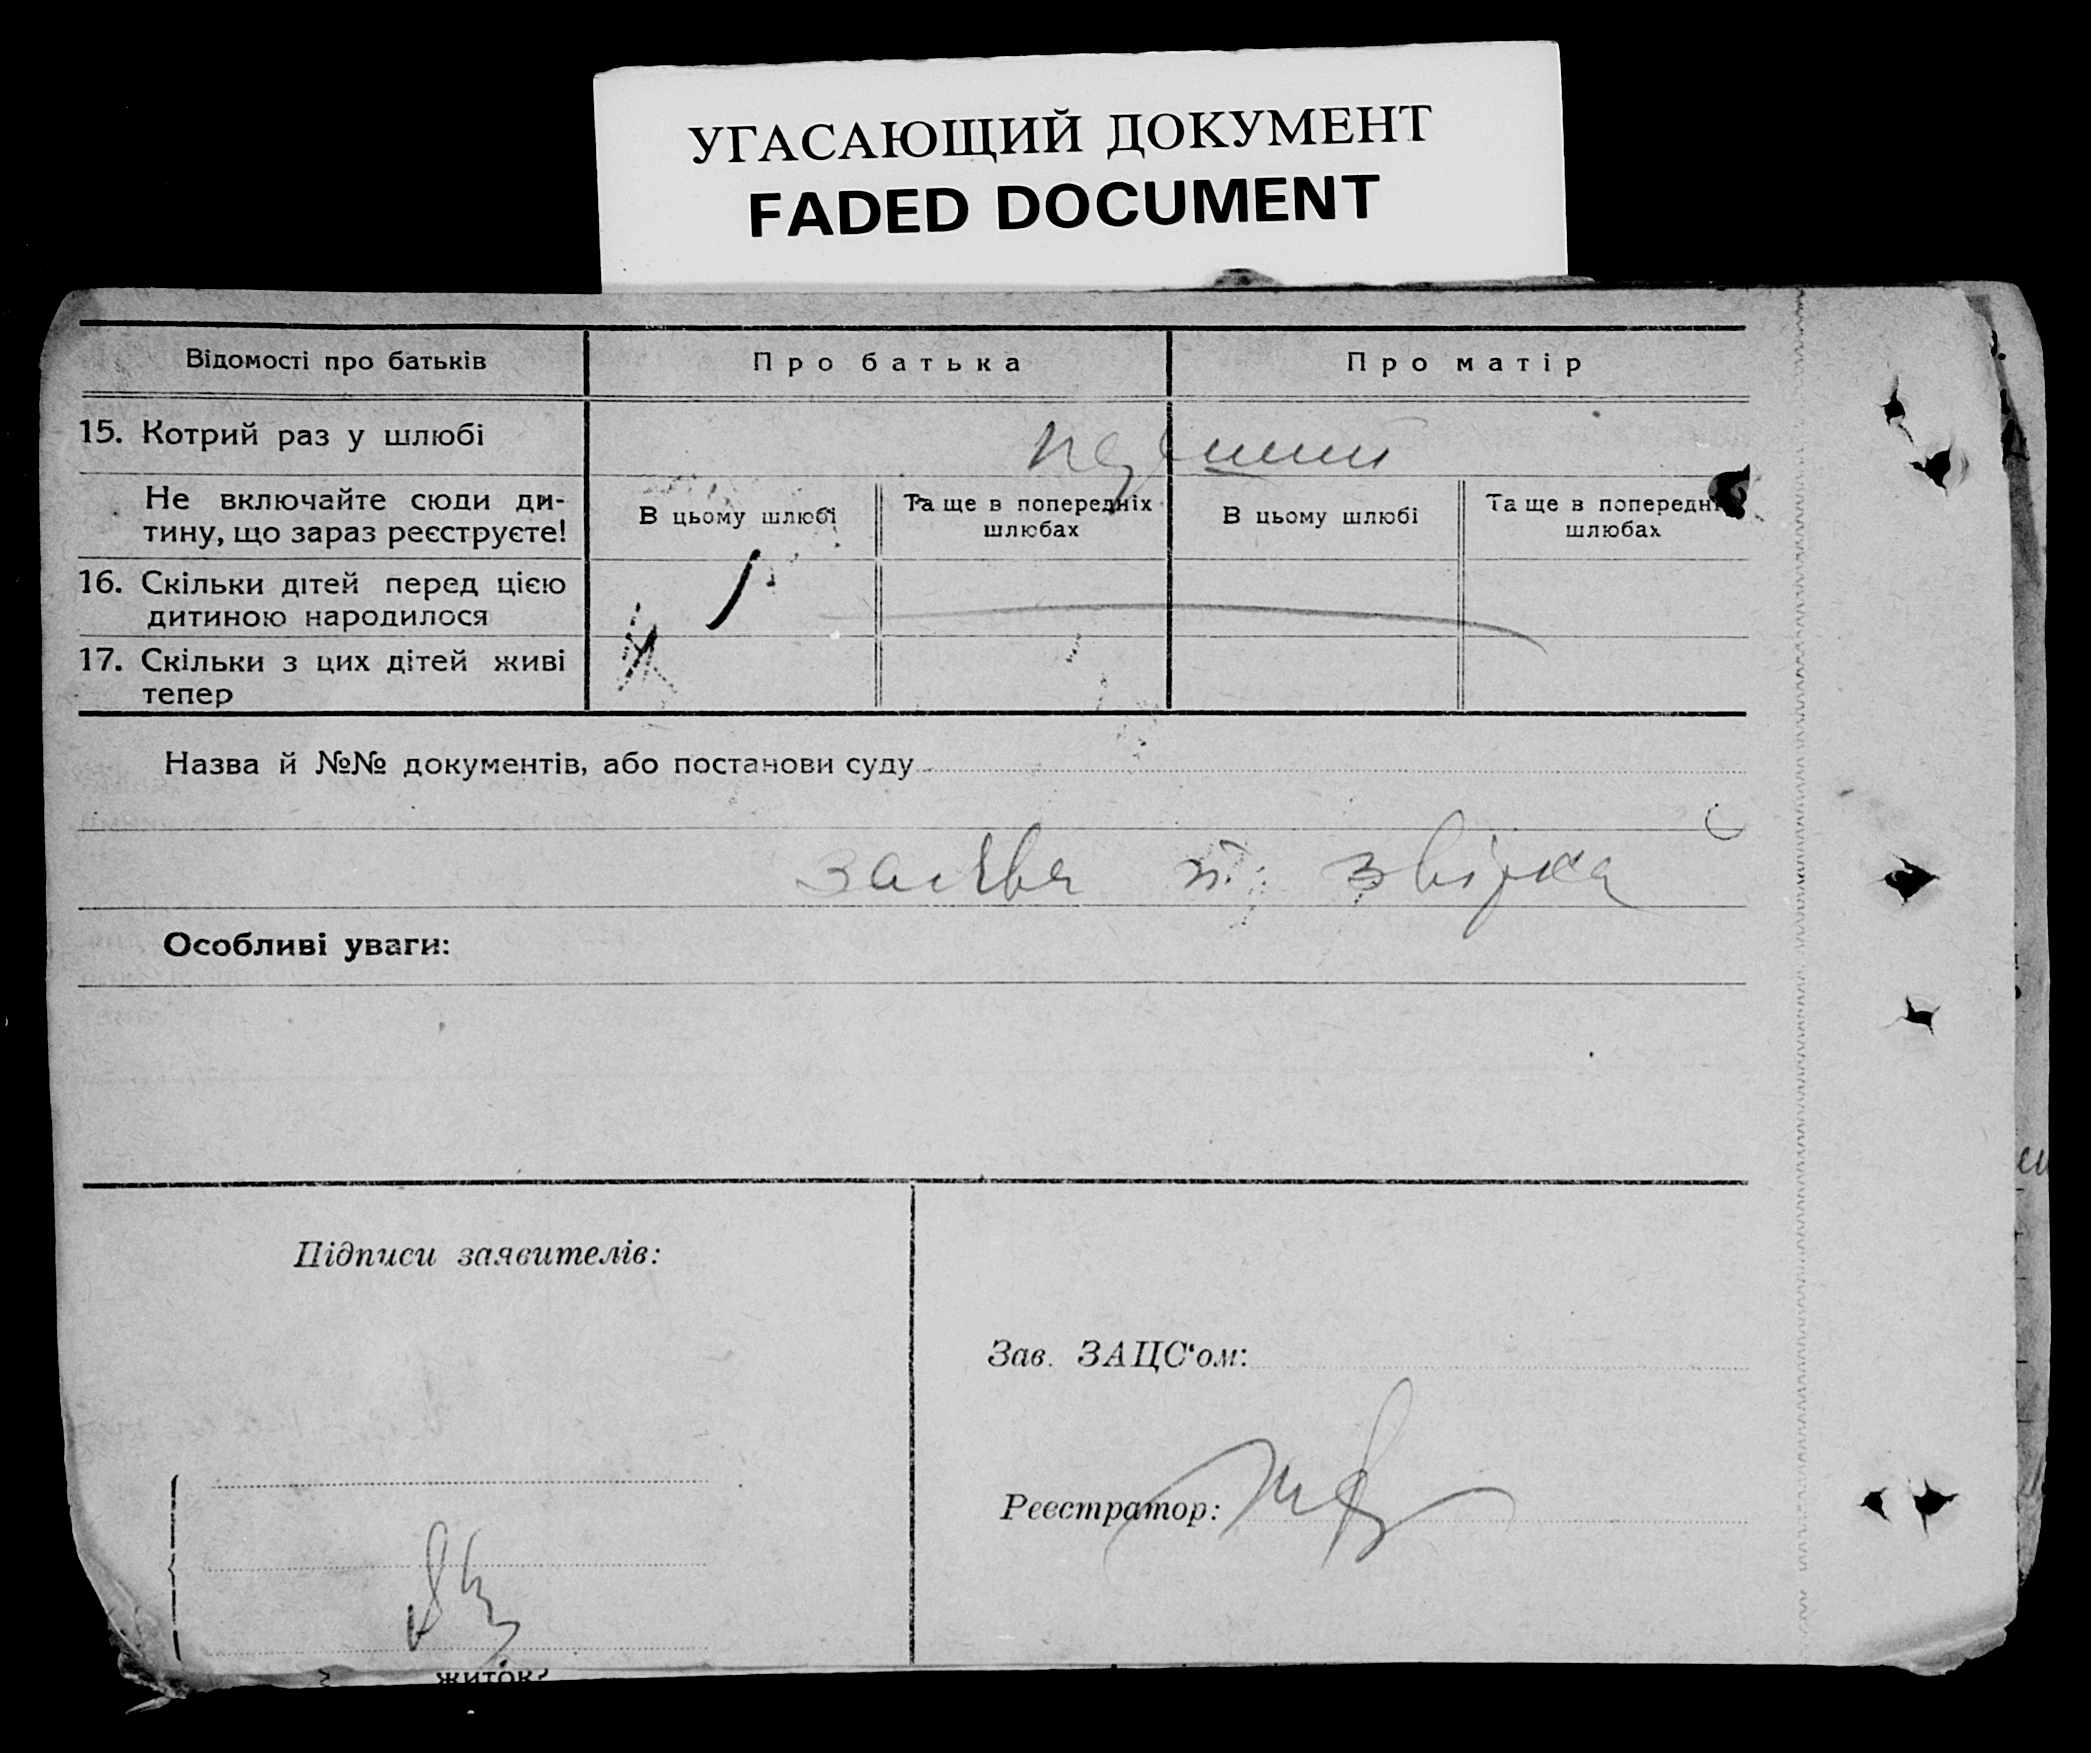 УГАСАЮЩИЙ ДОКУМЕНТ
FADED DOCUMENT
Відомості про батьків
Про батька
Про матір
15. Котрий раз у шлюбі
Не включайте сюди ди-
тину, що зараз реєструєте!
В цьому шлюбі
Та ще в попередніх
шлюбах
В цьому шлюбі
Та ще в попередніх
шлюбах
16. Скільки дітей перед цією
дитиною народилося
17. Скільки з цих дітей живі
тепер
Назва й №№ документів, або постанови суду
заява
Особливі уваги:
Підписи заявителів:
Зав. ЗАЦС'ом:
Реєстратор: